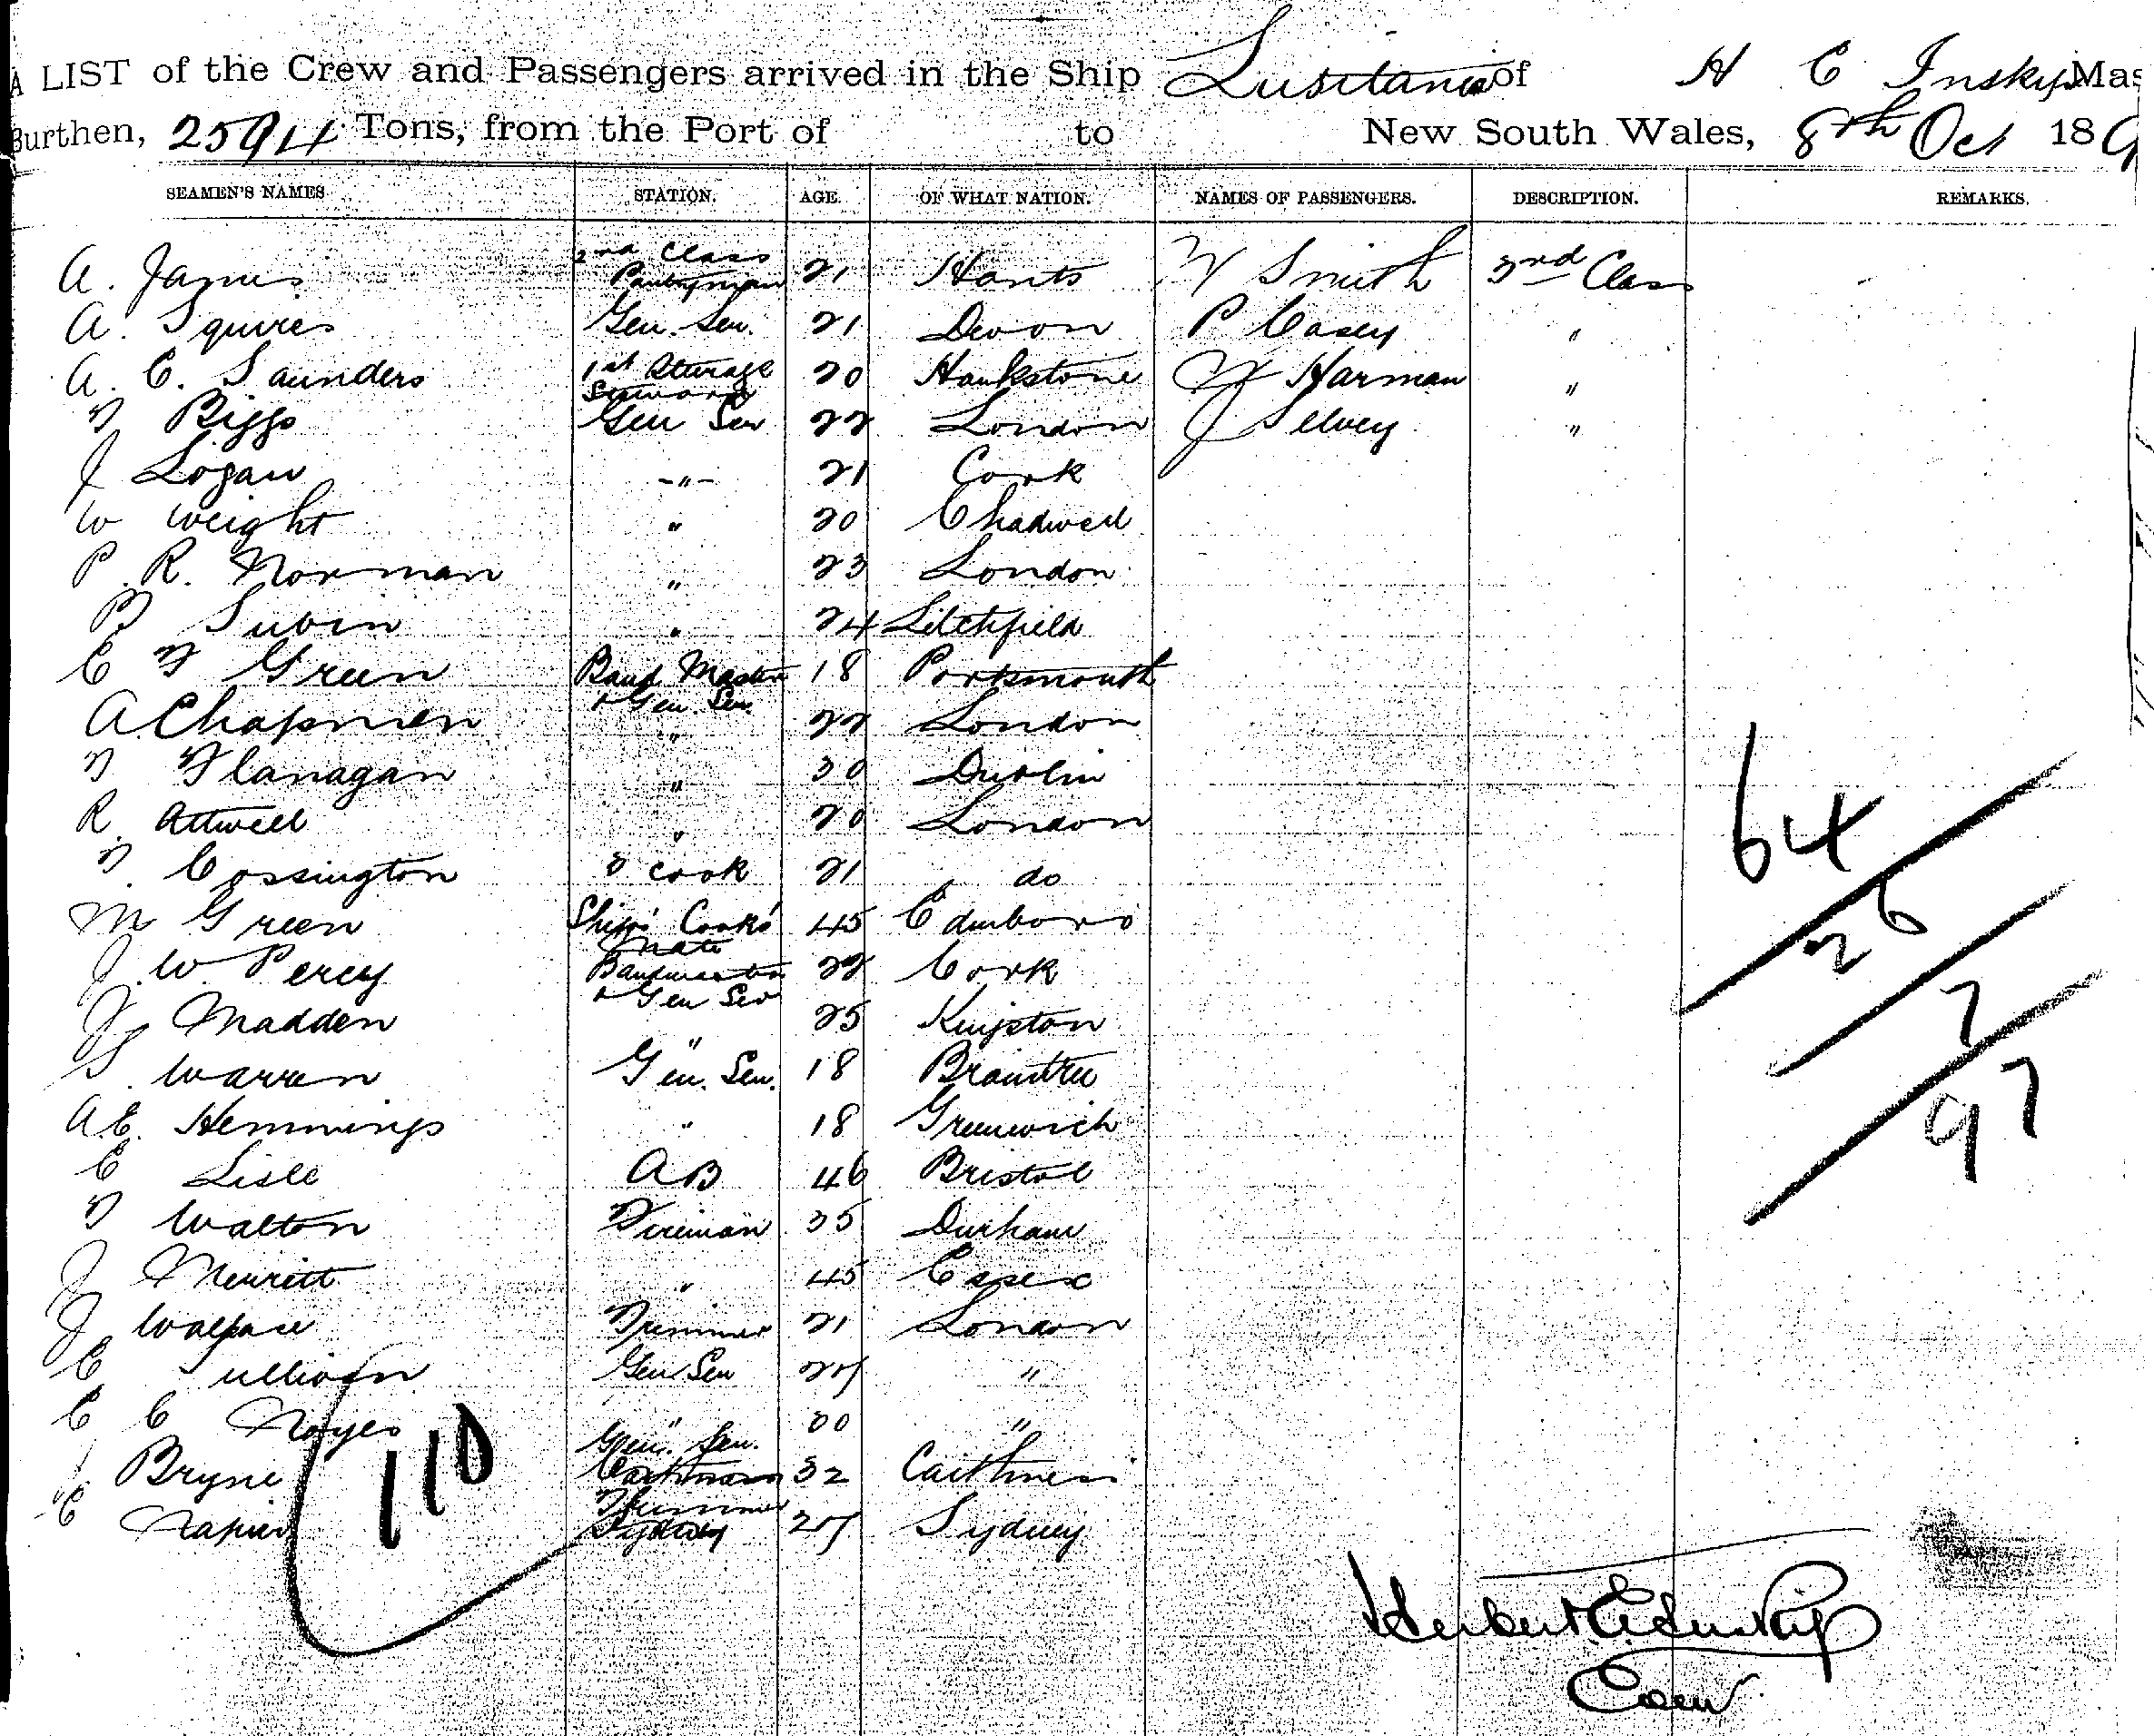 A LIST of the Crew and Passengers arrived in the Ship Lusitania of H C Inskip Mas
Burthen, 2594 Tons, from the Port of to New South Wales, 8th Oct 189
SEAMEN'S NAMES STATION. AGE. OF WHAT NATION. NAMES OF PASSENGERS. DESCRIPTION. REMARKS.
A. James 2nd Class Pantryman 21 Hants W Smith 3rd Class
A. Squires Gen. Ser. 21 Devon P Casey "
A. C. Saunders 1st Steerage Steward 20 W Harman "
T Biggs Gen Ser 22 London J Selvey "
J Logan -"- 21 Cork
W Weight " 20 Chadwell
P. R. Norman " 23 London
B Subin " 24 Litchfield
C F Green Band Master & Gen. Ser. 18 Portsmouth
A Chapmen " 22 London
T Flanagan " 30 Dublin
R. Attwell " 20 London
T. Cossington 3 Cook 21 do
M Green Ship's Cook's Mate 45 Edinboro
J. W. Percy Bandmaster & Gen Ser 22 Cork
J Madden " 25 Kingston
S. Warren Gen. Ser. 18 Braintree
A. E. Hemmings " 18 Greenwich
C Lisle AB 46 Bristol
T Walton Fireman 35 Durham
J Merritt " 45 Essex
J Walpole Trimmer 21 London
C Sullivan Gen Ser 27 "
C C Noyes " 30 "
Bryne Gen. Ser. 32 Caithness
C Napier Trimmer Sydney 27 Sydney
110
64
26
7
97
Herbert C Inskip